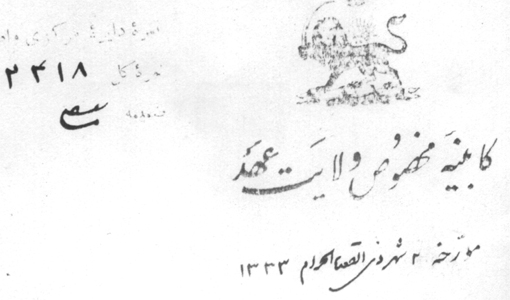 نمرهٔ دایرهٔ مرکزی
نمرهٔ کل ۲۴۱۸
ضمیمه
کابینهٔ مخصوص ولایت عهد
مورّخهٔ ۲ شهر ذی القعدة الحرام ۱۳۳۳